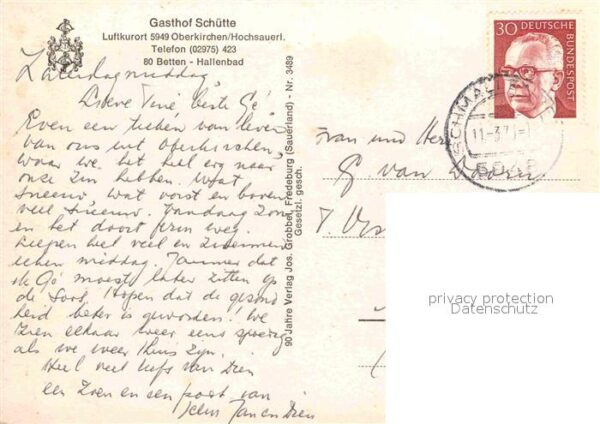 Gasthof Schütte
Luftkurort 5949 Oberkirchen/Hochsauerl.
Telefon (02975) 423
80 Betten - Hallenbad
Zaterdagmiddag
Lieve Tiné beste Gé
Even een teken van leven
van ons uit Oberkirchen,
waar we het heel erg naar
onze zin hebben. Wat
sneeuw, wat vorst en boven
veel sneeuw. Vandaag zon
en het dooit fijn weg.
Liepen heel veel en zwemmen
iedere middag. Jammer dat
de Gé moest later zitten op
de Hopen dat de gezond
heid beter is geworden. We
zien elkaar weer eens spoedig
als we weer thuis zijn.
Heel veel liefs van Dien
een zoen en een poot van
Jan en Dien
90 Jahre Verlag Jos. Grobbel, Fredeburg (Sauerland) - Nr. 3489
Gesetzl. gesch.
30 DEUTSCHE BUNDESPOST
SCHMAL
11-3.71-1
Frau und Herr
G. van
privacy protection
Datenschutz